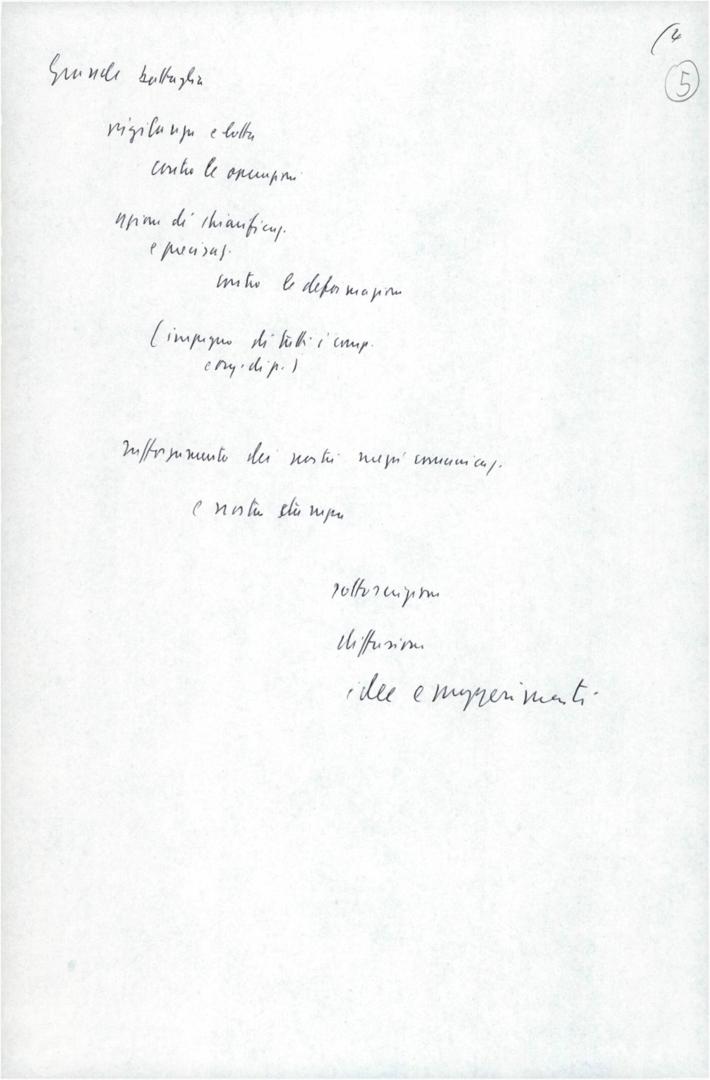 (4
5
Grande battaglia
vigilanza e lotta
contro le
azione di chiarificaz.
e precisaz.
contro le deformazioni
(impegno di tutti i comp.
e org. di p.)
rafforzamento dei nostri mezzi comunicaz.
e nostra stampa
sottoscrizione
diffusione
idee e suggerimenti.